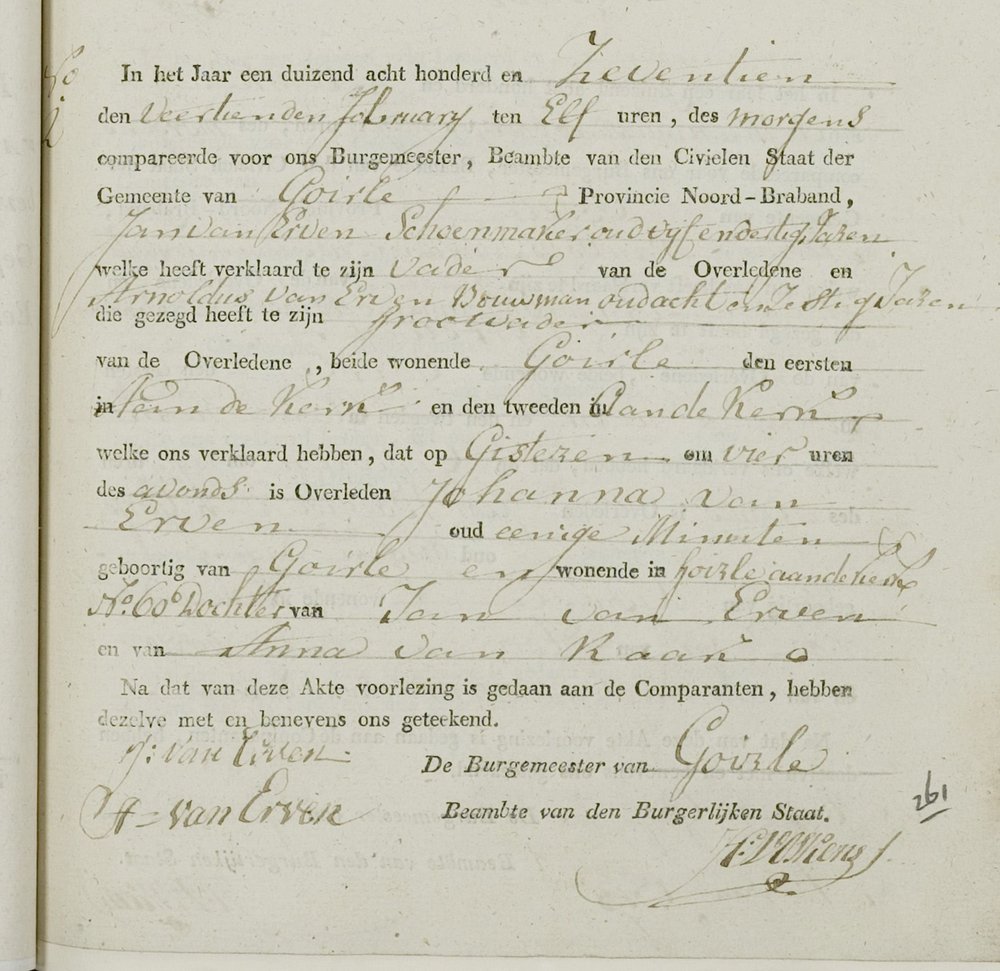 No
2
In het Jaar een duizend acht honderd en Zeventien
den Veertienden February ten Elf uren, des morgens
compareerde voor ons Burgemeester, Beambte van den Civielen Staat der
Gemeente van Goirle Provincie Noord-Braband,
Jan van Erven Schoenmaker oud vyf en dertig Jaren
welke heeft verklaard te zijn vader van de Overledene en
Arnoldus van Erven Bouwman oud acht en Zestig Jaren
die gezegd heeft te zijn Grootvader
van de Overledene, beide wonende Goirle den eersten
in aan de Kerk en den tweeden in aan de Kerk
welke ons verklaard hebben, dat op Gisteren om vier uren
des avonds is Overleden Johanna van
Erven oud eenige Minuten
geboortig van Goirle en wonende in Goirle aan de kerk
No. 60 Dochter van Jan van Erven
en van Anna van Raak
Na dat van deze Akte voorlezing is gedaan aan de Comparanten, hebben
dezelve met en benevens ons geteekend.
J: van Erven
De Burgemeester van Goirle
A= van Erven
Beambte van den Burgerlijken Staat.
261